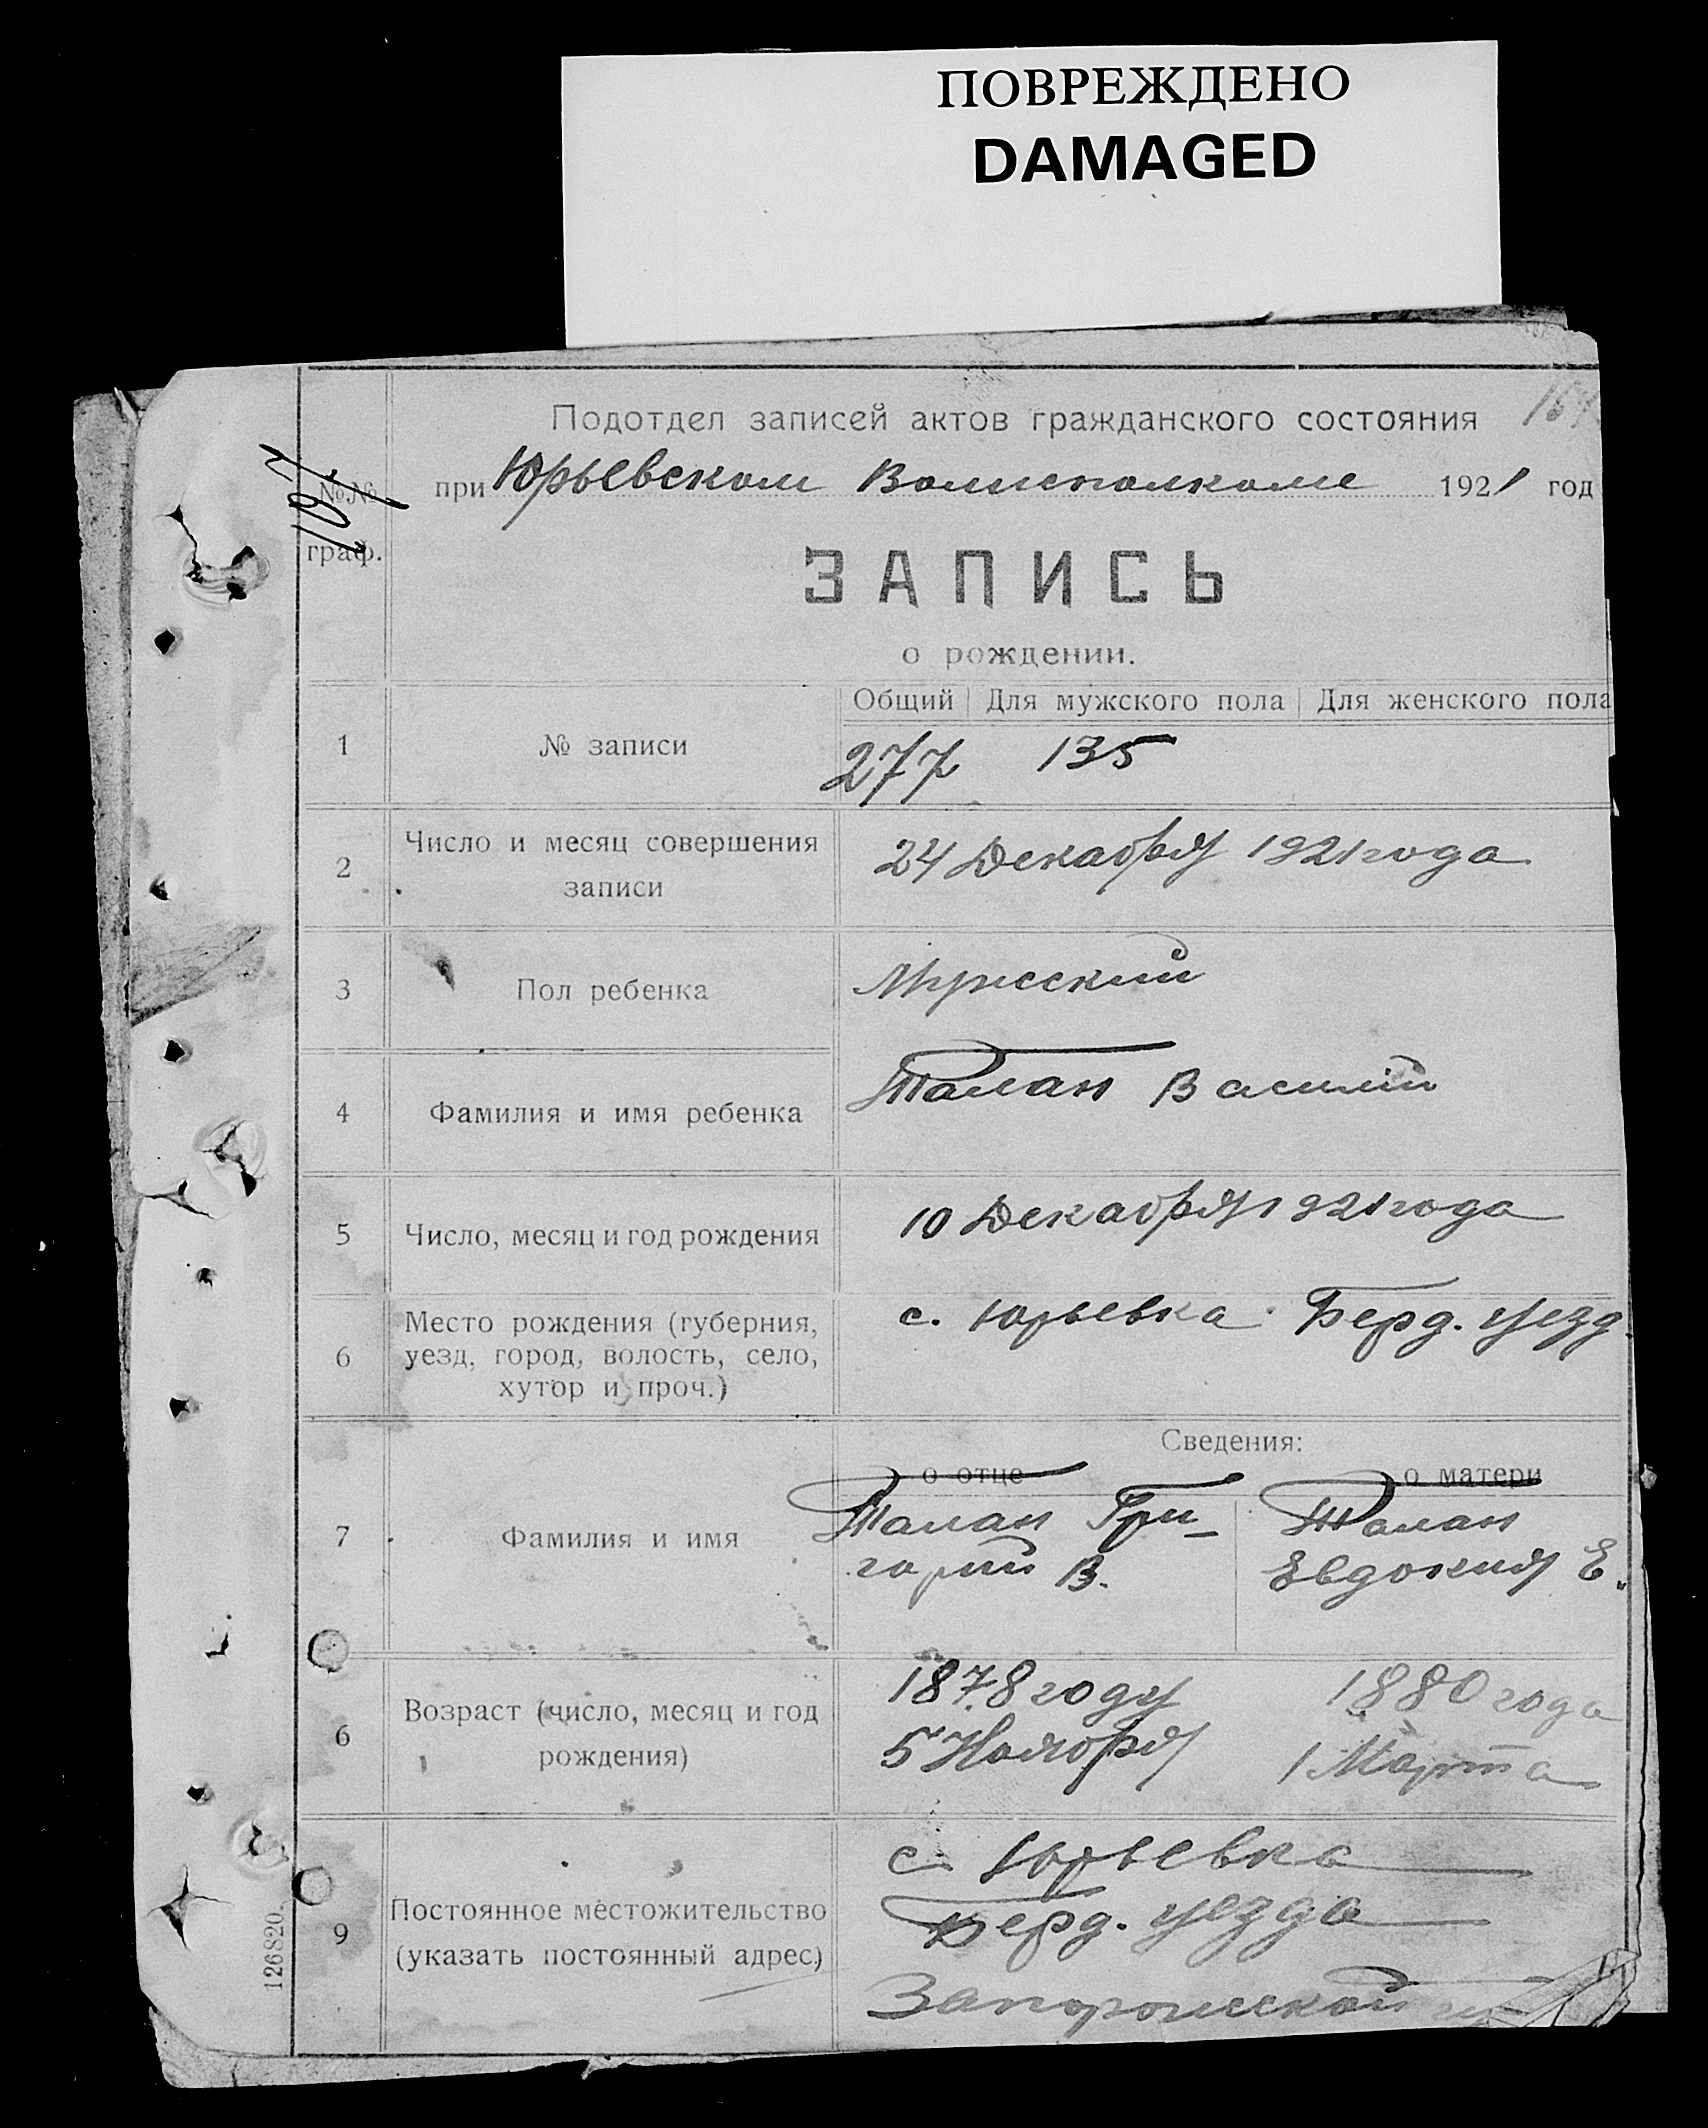 ПОВРЕЖДЕНО
DAMAGED
Подотдел записей актов гражданского состояния
при Юрьевском Волисполкоме 1921 год
№№
граф.
ЗАПИСЬ
о рождении.
Общий Для мужского пола Для женского пола
1 № записи 277 135
2 Число и месяц совершения
записи
24 Декабря 1921 года
3 Пол ребенка Мужеский
4 Фамилия и имя ребенка Талан Василий
5 Число, месяц и год рождения 10 Декабря 1921 года
6 Место рождения (губерния,
уезд, город, волость, село,
хутор и проч.)
с. Юрьевка Берд. уезд.
Сведения:
о отце о матери
7 Фамилия и имя
Талан Гри-
горий В.
Талан
Евдокия Е.
6 Возраст (число, месяц и год
рождения)
1878 году
5 Ноября
1880 года
1 Марта
9 Постоянное местожительство
(указать постоянный адрес)
с. Юрьевка
Берд. уезда
Запорожской
126820.